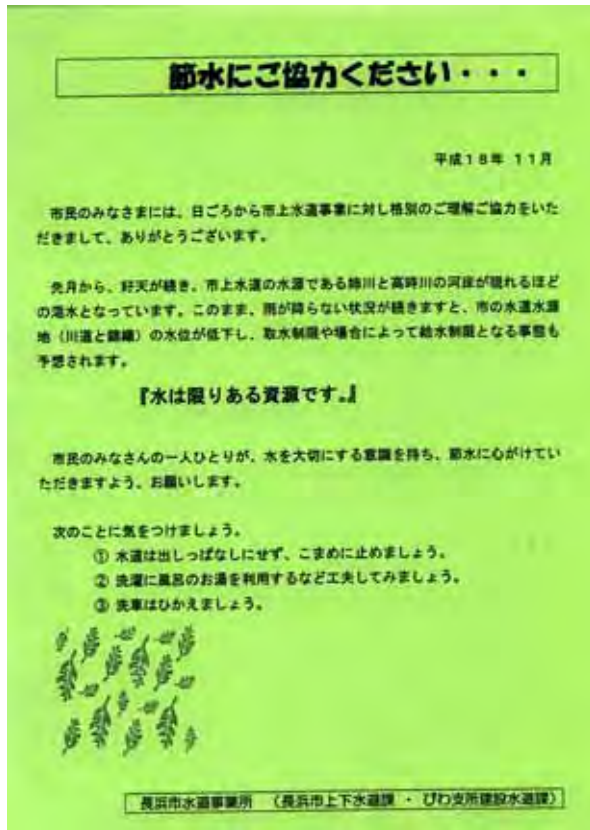 節水にご協力ください・・・
平成18年 11月
市民のみなさまには、日ごろから市上水道事業に対し格別のご理解ご協力をいた
だきまして、ありがとうございます。
先月から、好天が続き、市上水道の水源である姉川と高時川の河床が現れるほど
の渇水となっています。このまま、雨が降らない状況が続きますと、市の水道水源
地(川道と錦織)の水位が低下し、取水制限や場合によって給水制限となる事態も
予想されます。
『水は限りある資源です。』
市民のみなさんの一人ひとりが、水を大切にする意識を持ち、節水に心がけてい
ただきますよう、お願いします。
次のことに気をつけましょう。
① 水道は出しっぱなしにせず、こまめに止めましょう。
② 洗濯に風呂のお湯を利用するなど工夫してみましょう。
③ 洗車はひかえましょう。
長浜市水道事業所 (長浜市上下水道課 ・ びわ支所建設水道課)